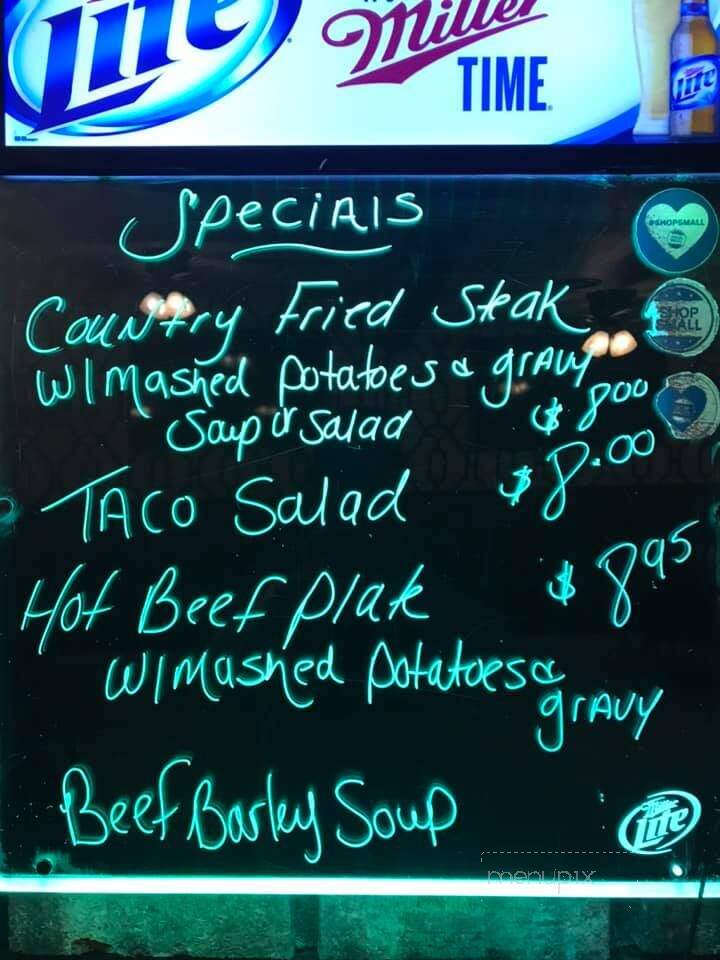 Lite
Miller
TIME
Lite
Specials
#SHOPSMALL
Country Fried Steak
SHOP
SMALL
W/Mashed potatoes & gravy
Soup or Salad $8.00
Taco Salad $8.00
Hot Beef plate $8.95
W/Mashed potatoes &
gravy
Beef Barley Soup
Lite
menupix